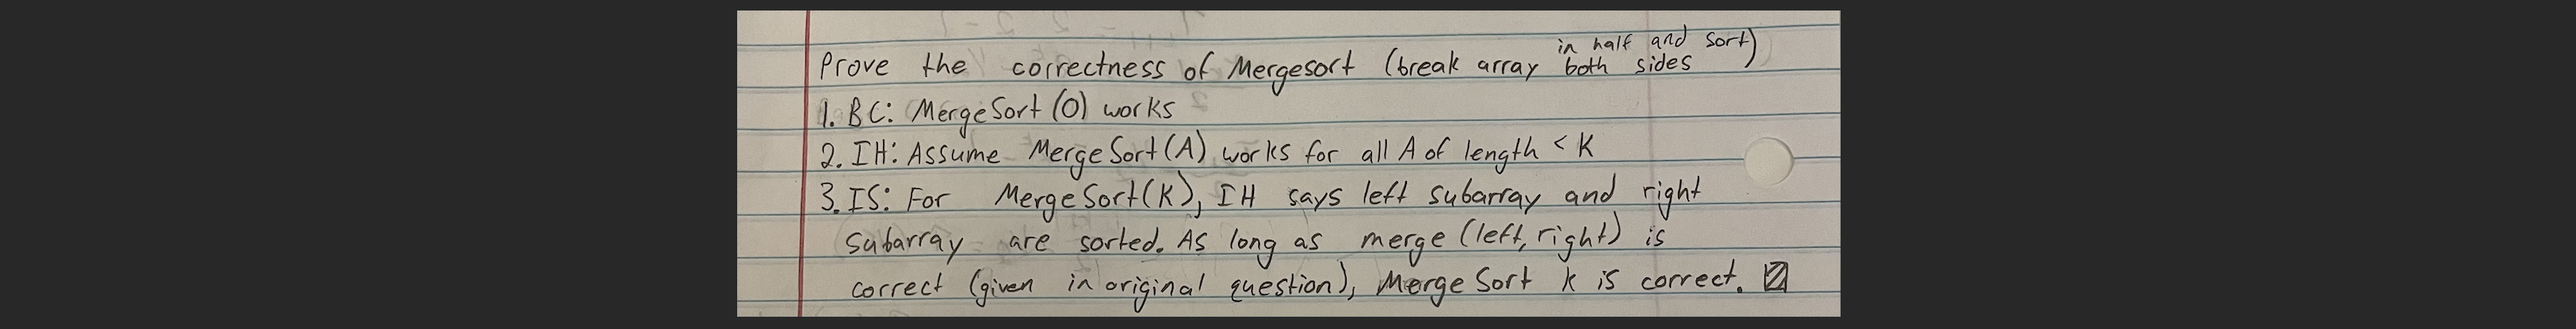 Prove the correctness of Mergesort (break array in half and sort both sides)
1. BC: MergeSort (0) works
2. IH: Assume MergeSort(A) works for all A of length < K
3. IS: For MergeSort(K), IH says left subarray and right
subarray are sorted. As long as merge (left, right) is
correct (given in original question), MergeSort k is correct.